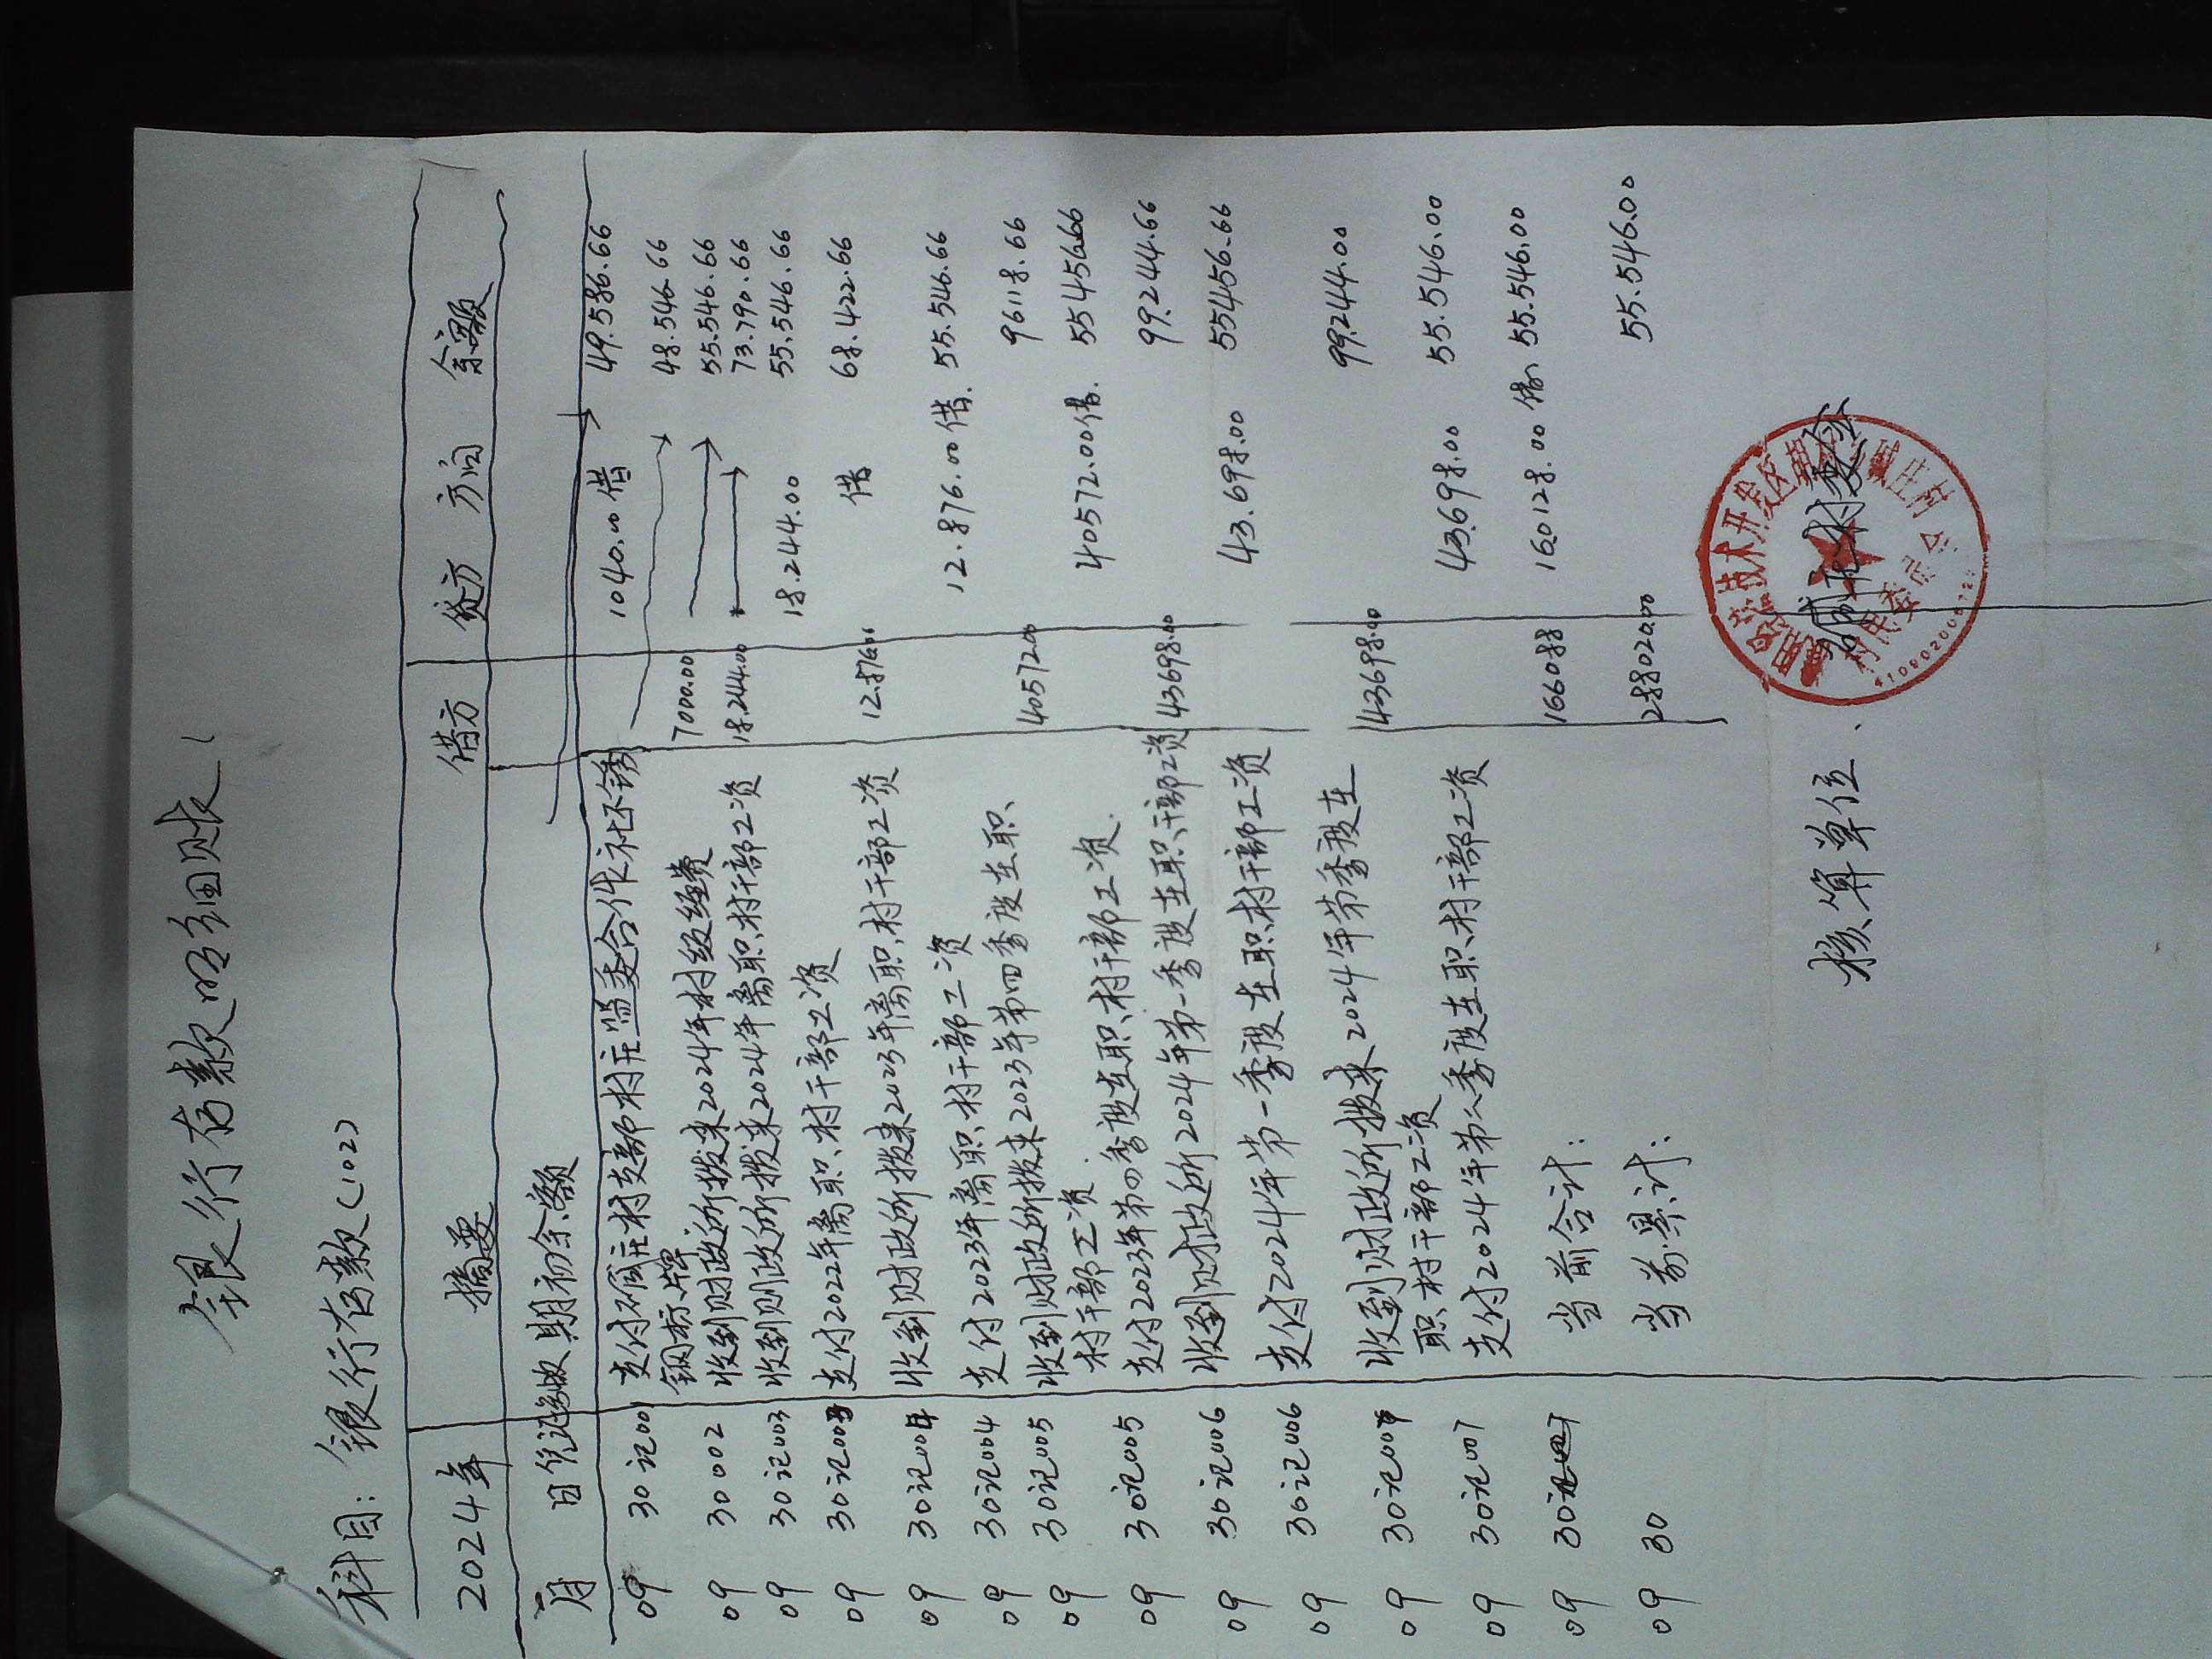 银行存款明细账
科目：银行存款(102)
2024年 摘要 借方 贷方 方向 余额
月 日 凭证号数 期初余额 49.586.66
09 30 记001 支付碱庄村支部村庄监委合作社不锈 1040.00 借 48.546.66
钢标牌
09 30 002 收到财政所拨来2024年村级经费 7000.00 55.546.66
09 30 记003 收到财政所拨来2024年离职村干部工资 18.244.00 73.790.66
09 30 记003 支付2022年离职、村干部工资 18.244.00 55.546.66
09 30 记004 收到财政所拨来2023年离职、村干部工资 12.876.00 借 68.422.66
09 30 记004 支付2023年离职、村干部工资 12.876.00 借 55.546.66
09 30 记005 收到财政所拨来2023年第四季度在职、 40572.00 96118.66
村干部工资
09 30 记005 支付2023年第四季度在职、村干部工资 40572.00 借 55456.66
09 30 记006 收到财政所2024年第一季度在职、干部工资 43698.00 99.244.66
09 30 记006 支付2024年第一季度在职、村干部工资 43.698.00 55456.66
09 30 记007 收到财政所拨来2024年第季度在 43698.00 99244.00
职、村干部工资
09 30 记007 支付2024年第二季度在职、村干部工资 43698.00 55.546.00
09 30 当前合计： 166088 160128.00 借 55.546.00
09 30 当前累计： 288020.00 55.546.00
核算单位、碱庄村委会
经济技术开发区胡村乡碱庄村
村民委员会